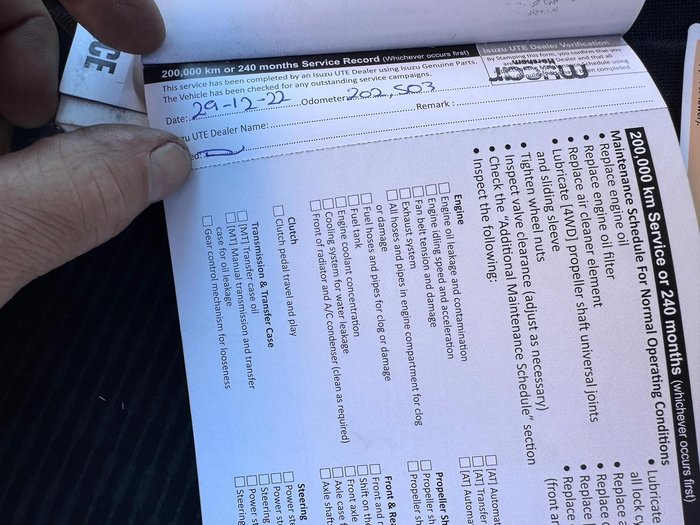 200,000 km or 240 months Service Record (Whichever occurs first)
This service has been completed by an Isuzu UTE Dealer using Isuzu Genuine Parts.
The Vehicle has been checked for any outstanding service campaigns.
Date: 29-12-22 Odometer: 202,503
Remark :
zu UTE Dealer Name:
ed:
Isuzu UTE Dealer Verification
By Stamping this form, you confirm that you
Dealer and that all
schedule using
en completed
mycar
ICE
200,000 km Service or 240 months (whichever occurs first)
Maintenance Schedule For Normal Operating Conditions
• Replace engine oil
• Replace engine oil filter
• Replace air cleaner element
• Lubricate [4WD] propeller shaft universal joints
and sliding sleeve
• Tighten wheel nuts
• Inspect valve clearance (adjust as necessary)
• Check the "Additional Maintenance Schedule" section
• Inspect the following:
Engine
☐ Engine oil leakage and contamination
☐ Engine idling speed and acceleration
☐ Fan belt tension and damage
☐ Exhaust system
☐ All hoses and pipes in engine compartment for clog
or damage
☐ Fuel hoses and pipes for clog or damage
☐ Fuel tank
☐ Engine coolant concentration
☐ Cooling system for water leakage
☐ Front of radiator and A/C condenser (clean as required)
Clutch
☐ Clutch pedal travel and play
Transmission & Transfer Case
☐ [MT] Transfer case oil
☐ [MT] Manual transmission and transfer
case for oil leakage
☐ Gear control mechanism for looseness
• Lubricate
all lock c
• Replace
• Replace
• Replace
(front a
• Replace
☐ [AT] Automa
☐ [AT] Transfe
☐ [AT] Automa
Propeller Sh
☐ Propeller sh
☐ Propeller sh
Front & Re
☐ Front and r
☐ Shift on th
☐ Front axle
☐ Axle case f
☐ Axle shaft
Steering
☐ Power st
☐ Power s
☐ Steering
☐ Power s
☐ Steering